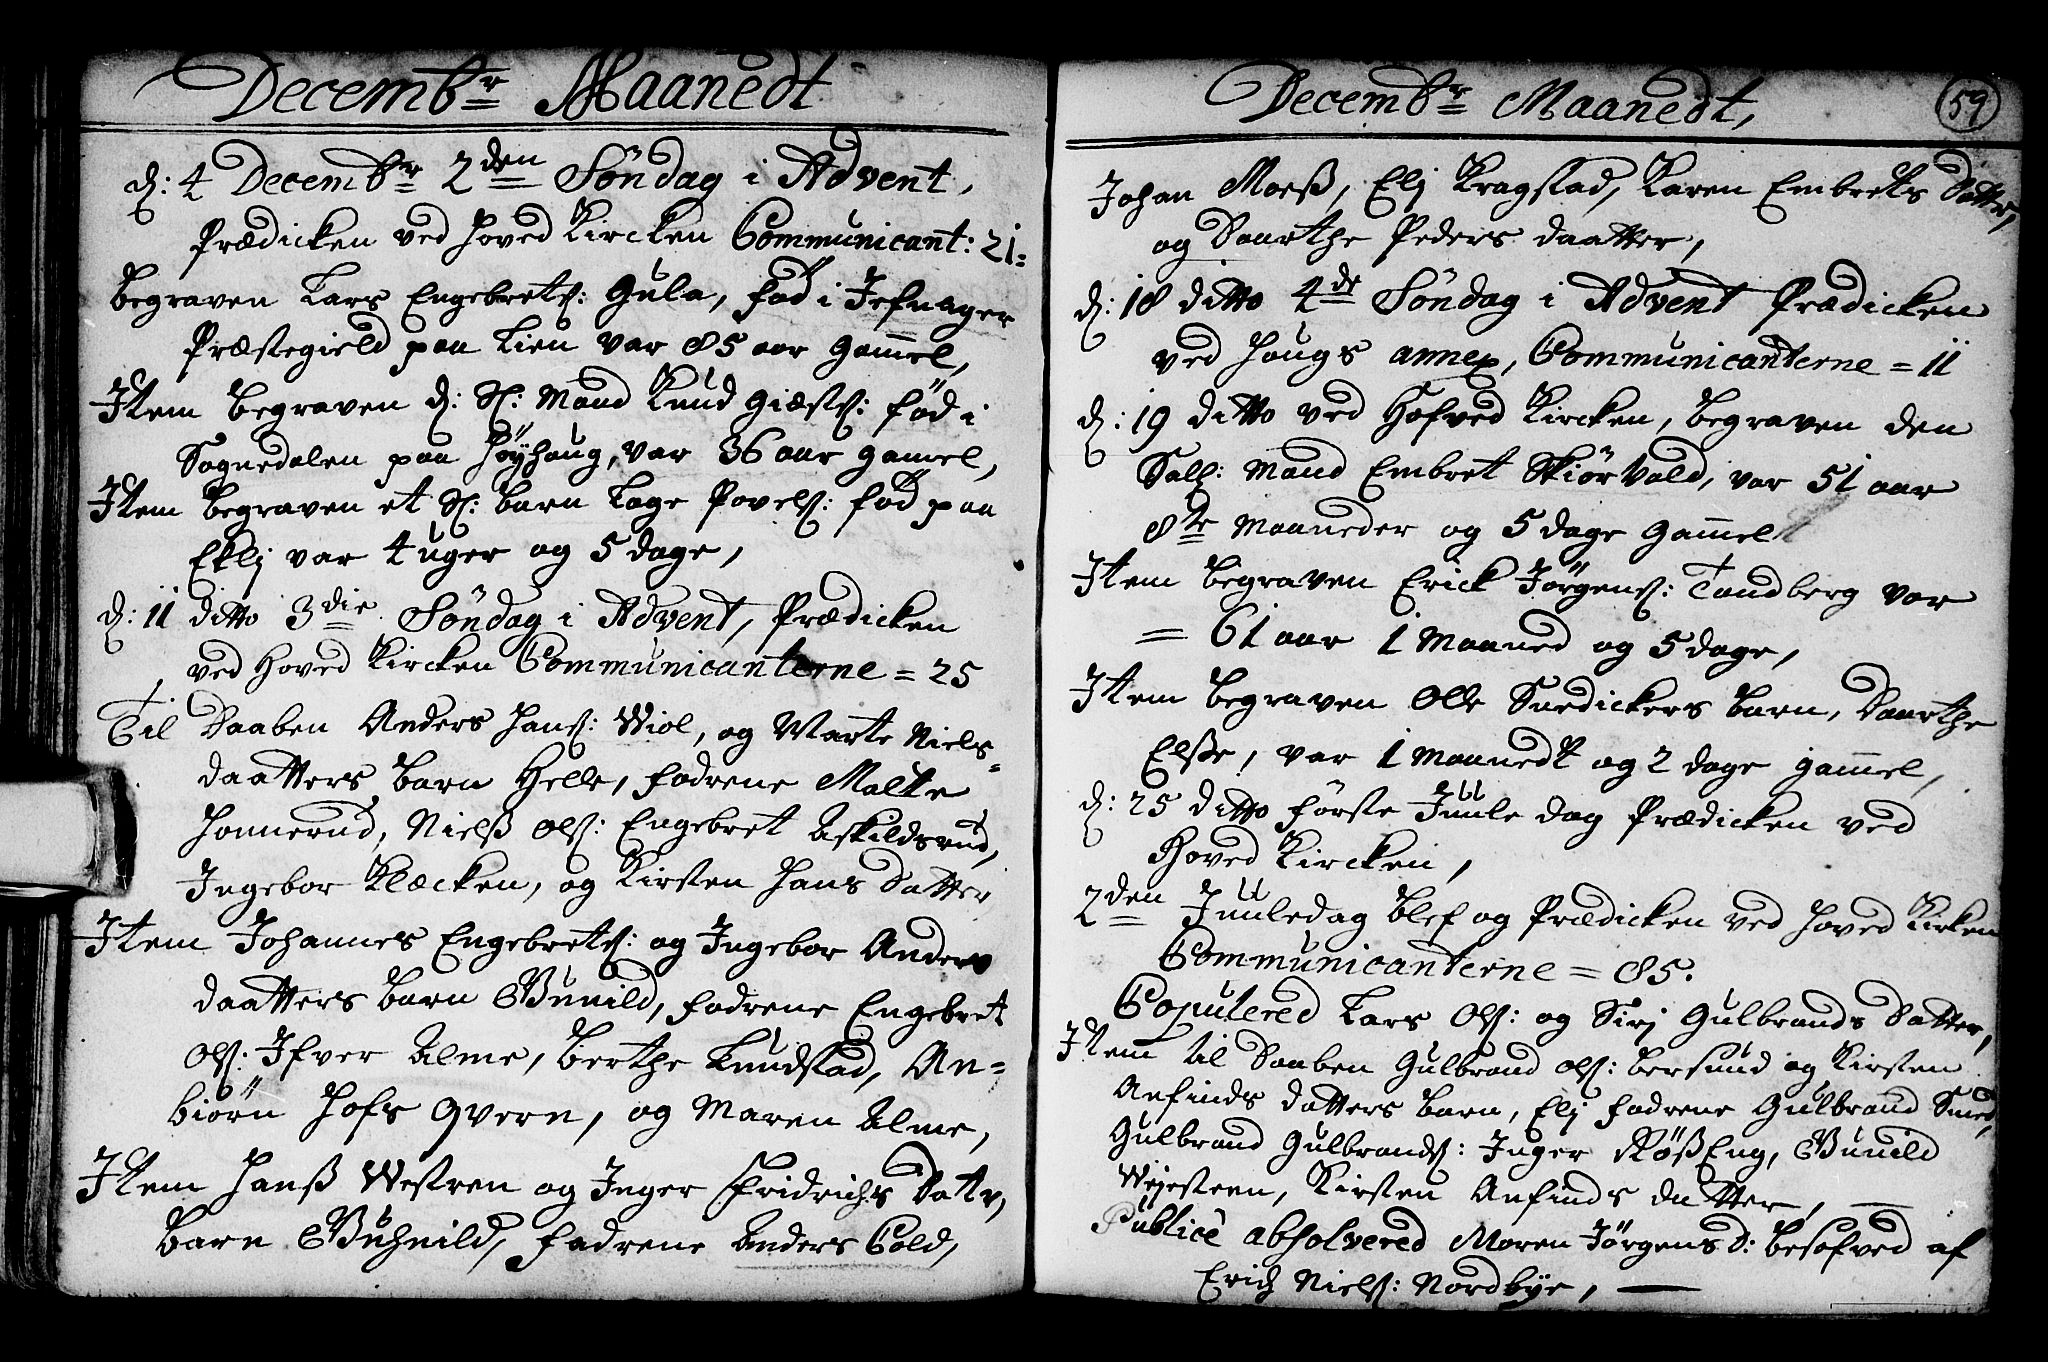 Decembr Maanedt
d: 4 Decembr 2den Söndag i Advent,
Prædicken ved Hoved Kircken Communicant: 21=
Begraven Lars Engebrets: Gula, föd i Jefnager
Præstegield paa Lien var 85 aar Gam̄el,
Item Begraven d: Sl: Mand Knud Giæsts: föd i
Sognedalen paa Höyhaug, var 36 aar gamel,
Item Begraven et Sl: Barn Lage Povels: föd paa
Eklj var 4 uger og 5 dage,
d: 11 ditto 3die Söndag i Advent, Prædicken
ved Hoved Kircken Communicanterne = 25
Til Daaben Anders Hans: Wiol, og Marte Niels-
daatters Barn Helle, fadrene Malte
Honnerud, Nielß Ols: Engebret Askildsrud,
Ingebor Klæcken, og Kirsten Hans Datter
Item Johannes Engebrets: og Ingebor Anders
daatters Barn Gunild, fadrene Engebret
Ols: Ifver Alme, Berthe Knudstad, An=
biörn Hofs Qvern, og Maren Alme,
Item Hanß Westren og Inger Fridrichs Dattr,
Barn Guhnild, fadrene Anders Cold,
Decembr Maanedt,
59
Johan Moeß, Elj Kragstad, Karen Embrets Datter,
og Daarthe Peders daatter,
d: 18 ditto 4de Söndag i Advent Prædicken
ved Hougs annex, Communicanterne = 11
d: 19 ditto ved Hofved Kircken, Begraven den
Sall: Mand Embret Skiörvold, var 51 aar
8te Maaneder og 5 dage Gam̄el
Item Begraven Erick Jörgens: Tandberg var
= 61 aar 1 Maaned og 5 dage,
Item Begraven Olle Snedickers Barn, Daarthe
Elsse, var 1 Maanedt og 2 dage gam̄el,
d: 25 ditto förste Juule dag Prædicken ved
Hoved Kircken,
2den Juuledag blef og Prædicken ved Hoved Kirken
Communicanterne = 85.
Copulered Lars Ols: og Sirj Gulbrands Datter,
Item til Daaben Gulbrand Ols: Bersund og Kirsten
Anfinds datters Barn, Elj fadrene Gulbrand Smed,
Gulbrand Gulbrands: Inger RößEng, Gunild
Wejesteen, Kirsten Anfinds datter,
Publicè absolvered Maren Jörgens D: besofved af
Erich Niels: Nordbye,